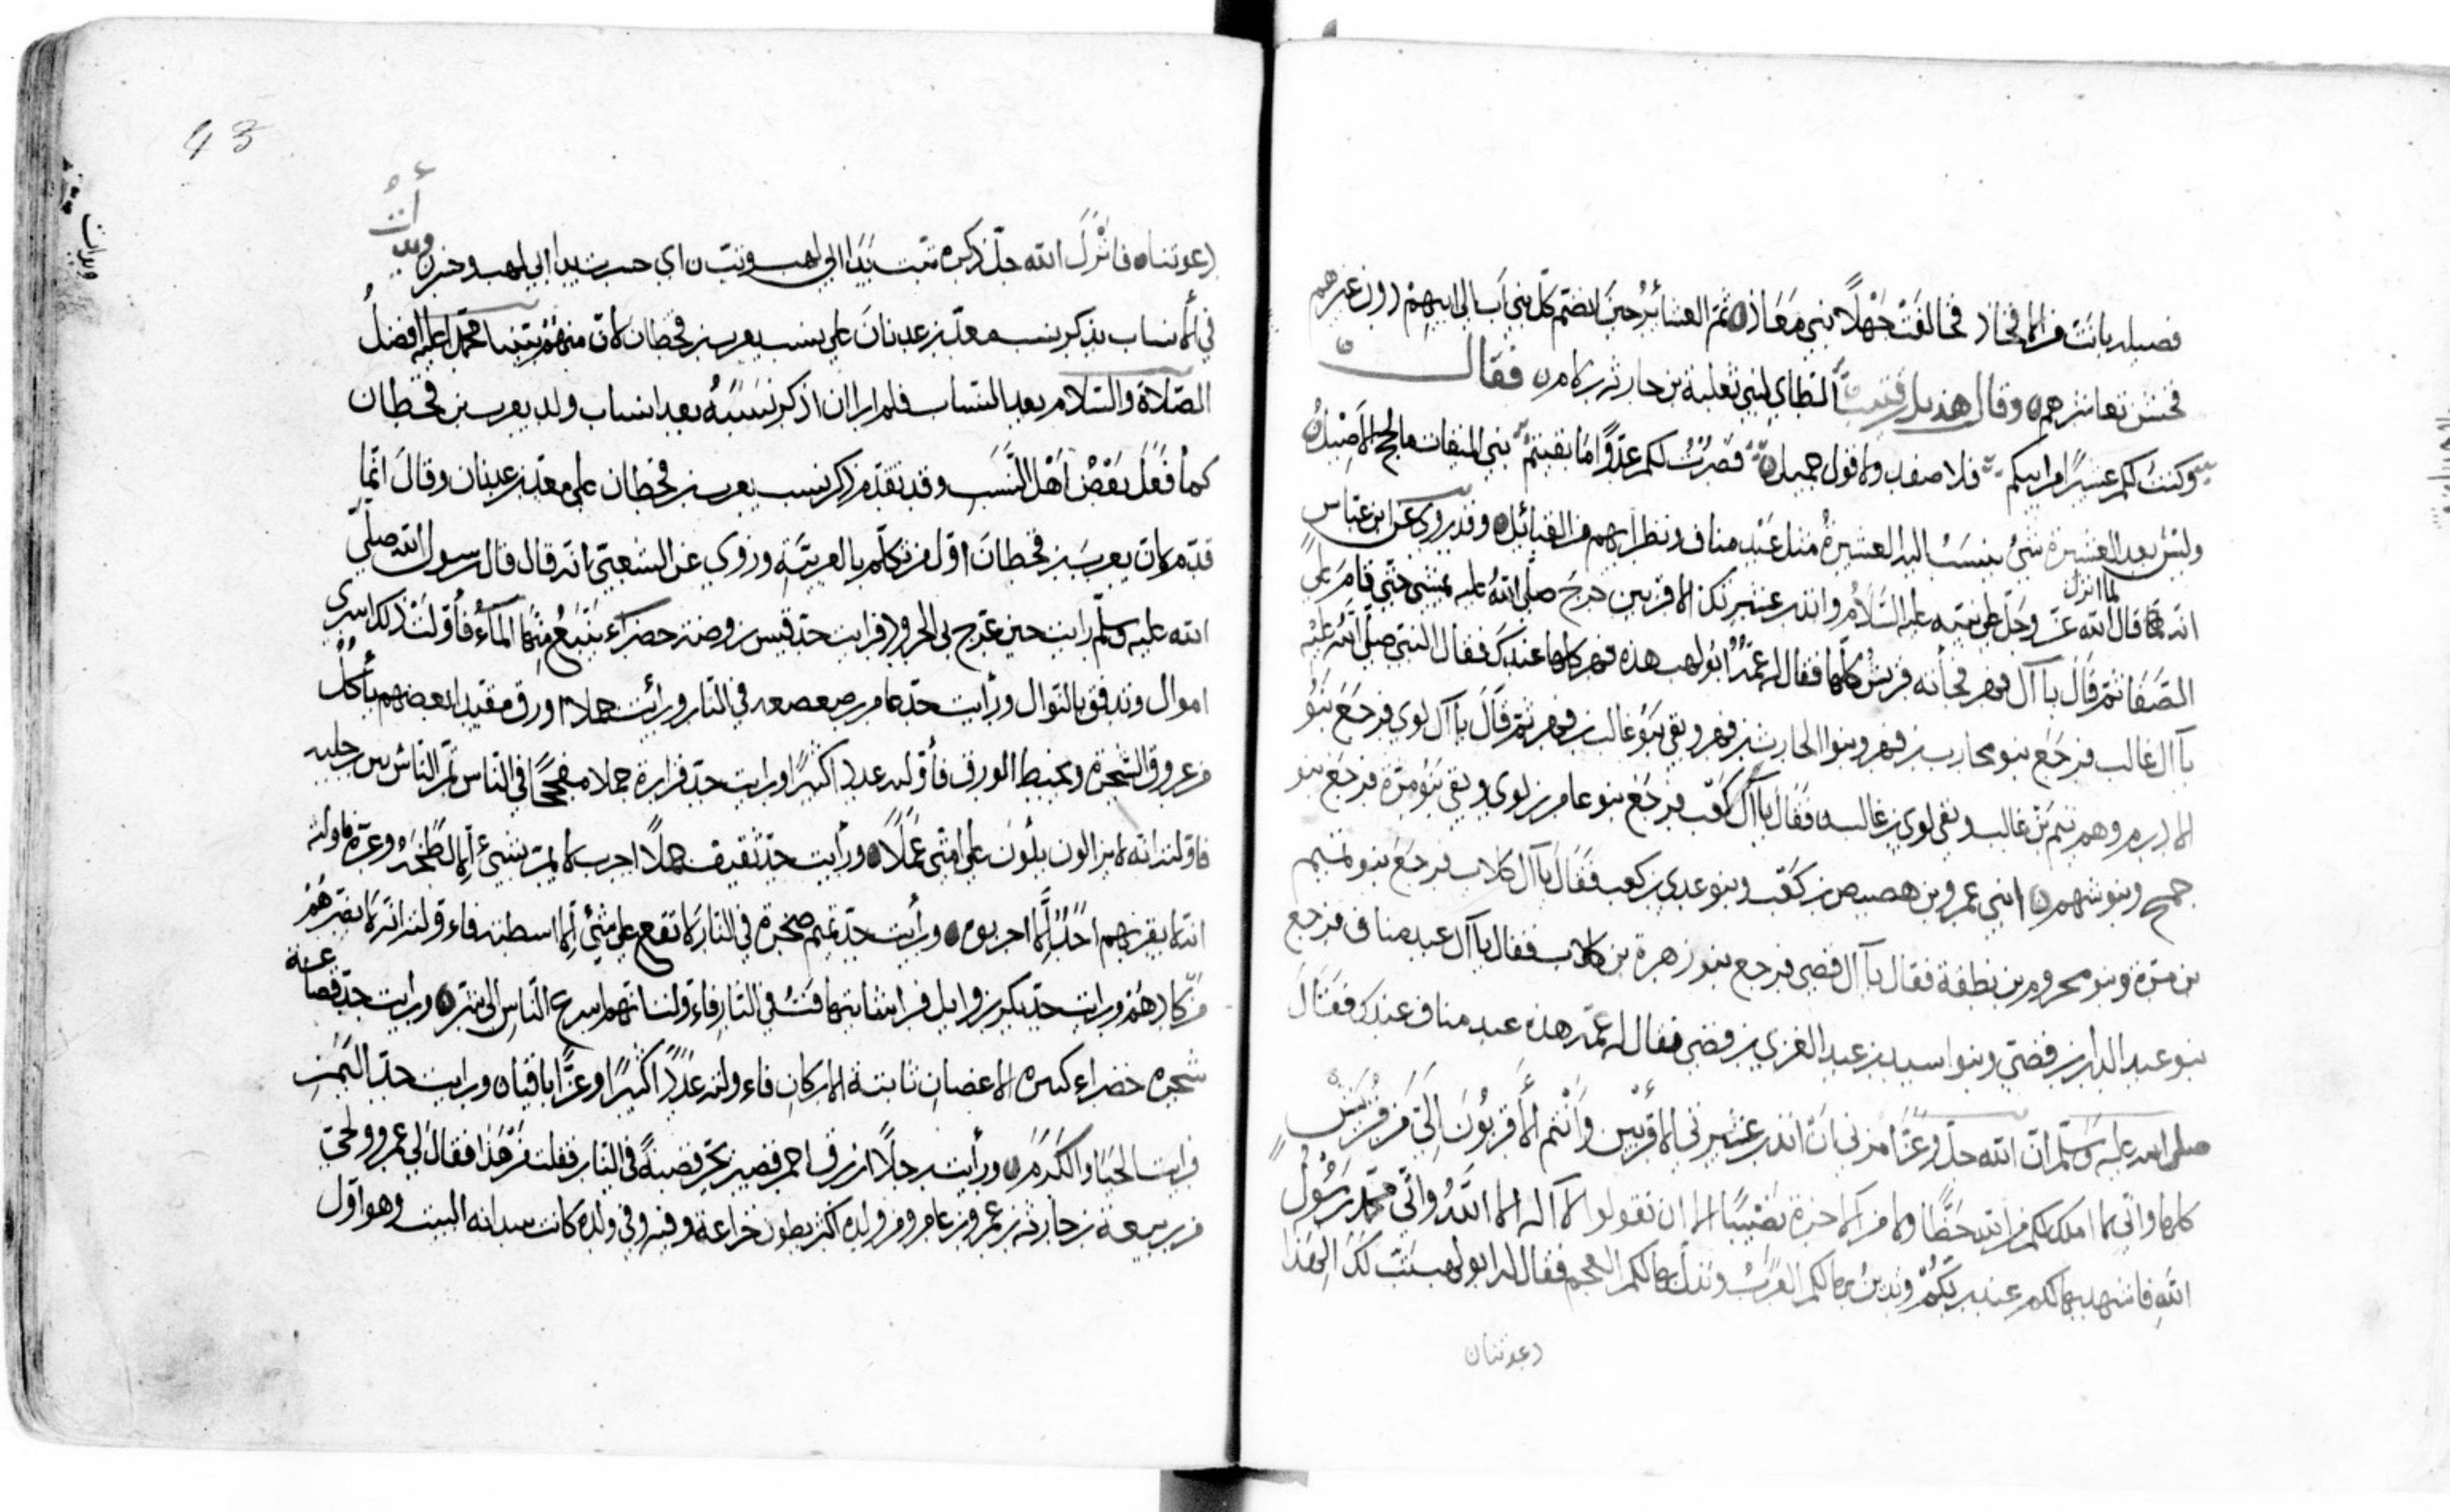 فصيله بانت من الافخاذ فخالفت جهلا بني معاذ ثم العشائر حين انضم كل بني اب الى ابيهم دون غيرهم
فحسن تعاشرهم وقال هذيل الطائي لبني ثعلبة بن حارثه بن لام فقال
وكنت لكم عشيرا من ابيكم فلا صفد ولا قول جميل فصرت لكم عدوا ما بقيتم بني
وليس بعد العشيرة شئ ينسب اليه العشيرة مثل عبد مناف ونظرايهم من القبائل وقد روي عن ابن عباس
انه لما انزل الله عز وجل على نبيه عليه السلام وانذر عشيرتك الاقربين خرج صلى الله عليه يمشي حتى قام على
الصفا ثم قال يا آل فهر فجأته قريش كلها فقال له عمه ابو لهب هذه فهر كلها عندك فقال النبي صلى الله عليه
يا آل غالب فرجع بنو محارب بن فهر وبنو الحارث بن فهر وبقي بنو غالب بن فهر ثم قال يا آل لوي فرجع بنو
الادرم وهم تيم بن غالب وبقي لوي بن غالب فقال يا آل كعب فرجع بنو عامر بن لوي وبقي بنو مرة فرجع بنو
جمح وبنو سهم ابني عمرو بن هصيص بن كعب وبنو عدي بن كعب فقال يا آل كلاب فرجع بنو تميم
بن مرة وبنو مخزوم بن نطفة فقال يا آل قصي فرجع بنو زهرة بن كلاب فقال يا آل عبد مناف فرجع
بنو عبد الدار بن قصي وبنو اسيد بن عبد العزي بن قصي فقال له عمه هذه عبد مناف عندك فقال
صلى الله عليه وسلم ان الله جل وعز امرني ان انذر عشيرتي الاقربين وانتم الاقربون الي من قريش
كلها واني لا املك لكم من الله حظا ولا من الاخرة نصيبا الا ان تقولوا لا اله الا الله واني محمد رسول
الله فاشهد بها لكم عند ربكم وتدين بها لكم العرب وتذل بها لكم العجم فقال له ابو لهب تبت لك الهذا
دعوتنا
43
دعوتنا فانزل الله جل ذكره تبت يدا ابي لهب وتب اي خسرت يدا ابي لهب وخسر
في الانساب بذكر نسب معد بن عدنان على نسب يعرب بن قحطان لان منهم نبينا محمدا عليه افضل
الصلاة والسلام فلم ار ان اذكر نسبه بعد انساب ولد يعرب بن قحطان
كما فعل بعض اهل النسب وقد تقدم ذكر نسب يعرب بن قحطان على معد بن عدنان وقال انما
قدم لان يعرب بن قحطان اول من تكلم بالعربية وروي عن الشعبي انه قال قال رسول الله صلى
الله عليه وسلم رايت حين عرج بي فرايت جد قيس بن روضة خضراء ينبع منها الماء فأولت ذلك
اموال وتدفق بالنوال ورأيت جد عامر بن صعصعه في النار ورأيت جملا اورق مقيدا بعضهم يأكل
من عروق الشجرة ويخبط الورق فأولته عددا كثيرا ورايت جد فزارة جملا في الناس تمر الناس بين رجليه
فاولت انه لا يزالون على امتي ورأيت جد ثقيف جملا اجرب لا يمر بشئ الا لطخه وعره فاولته
انه لا يقربهم احد الا اجربوه ورأيت جد تميم صخرة في النار لا تقع على شئ الا فاءولته انه لا يضرهم
من كادهم ورايت جد بكر بن وايل في النار فاءولت انهم اسرع الناس الى ورايت جد قضاعة
شجره خضراء كثيره الاغصان ثابتة الاركان فاءولته عددا كثيرا وعزا باقيا ورايت جد اليمن
فرايت الحيا والكرم ورأيت رجلا ازرق احمر قصير يجر قصبه في النار فقلت من هذا فقال لي عمرو بن لحي
بن ربيعة بن حارثه بن عمرو بن عامر ومن ولده اكثر بطون خزاعة وفيه وفي ولده كانت سدانه البيت وهو اول